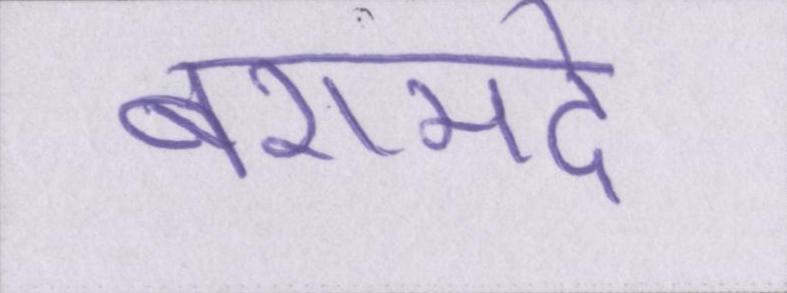 बरामदे